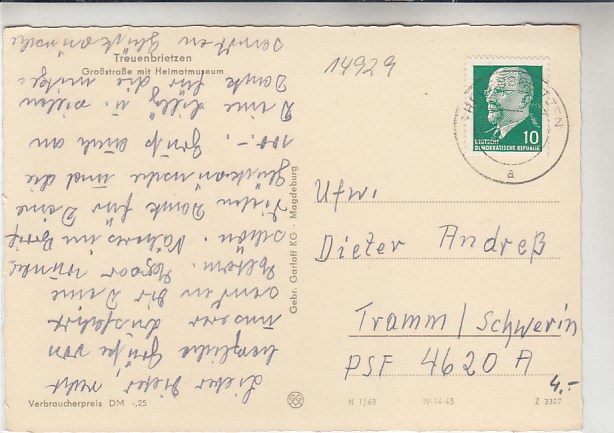 Treuenbrietzen
Großstraße mit Heimatmuseum
14929
10
DEUTSCHE
DEMOKRATISCHE REPUBLIK
a
Lieber Dieter, recht
herzliche Grüße von
unserer Ausfahrt
senden Dir Deine
Eltern.
schön. Näheres im Brief
Vielen Dank für Deine
Glückwünsche und die
100,-. Gruß auch an
Deine Lilly u. vielen
Dank für die mitge-
sandten Glückwünsche
Gebr. Garloff KG · Magdeburg
Ufw.
Dieter Andreß
Tramm/Schwerin
PSF 4620 A
4.-
Verbraucherpreis DM -,25
N 1/63 IV-14-45 Z 3307